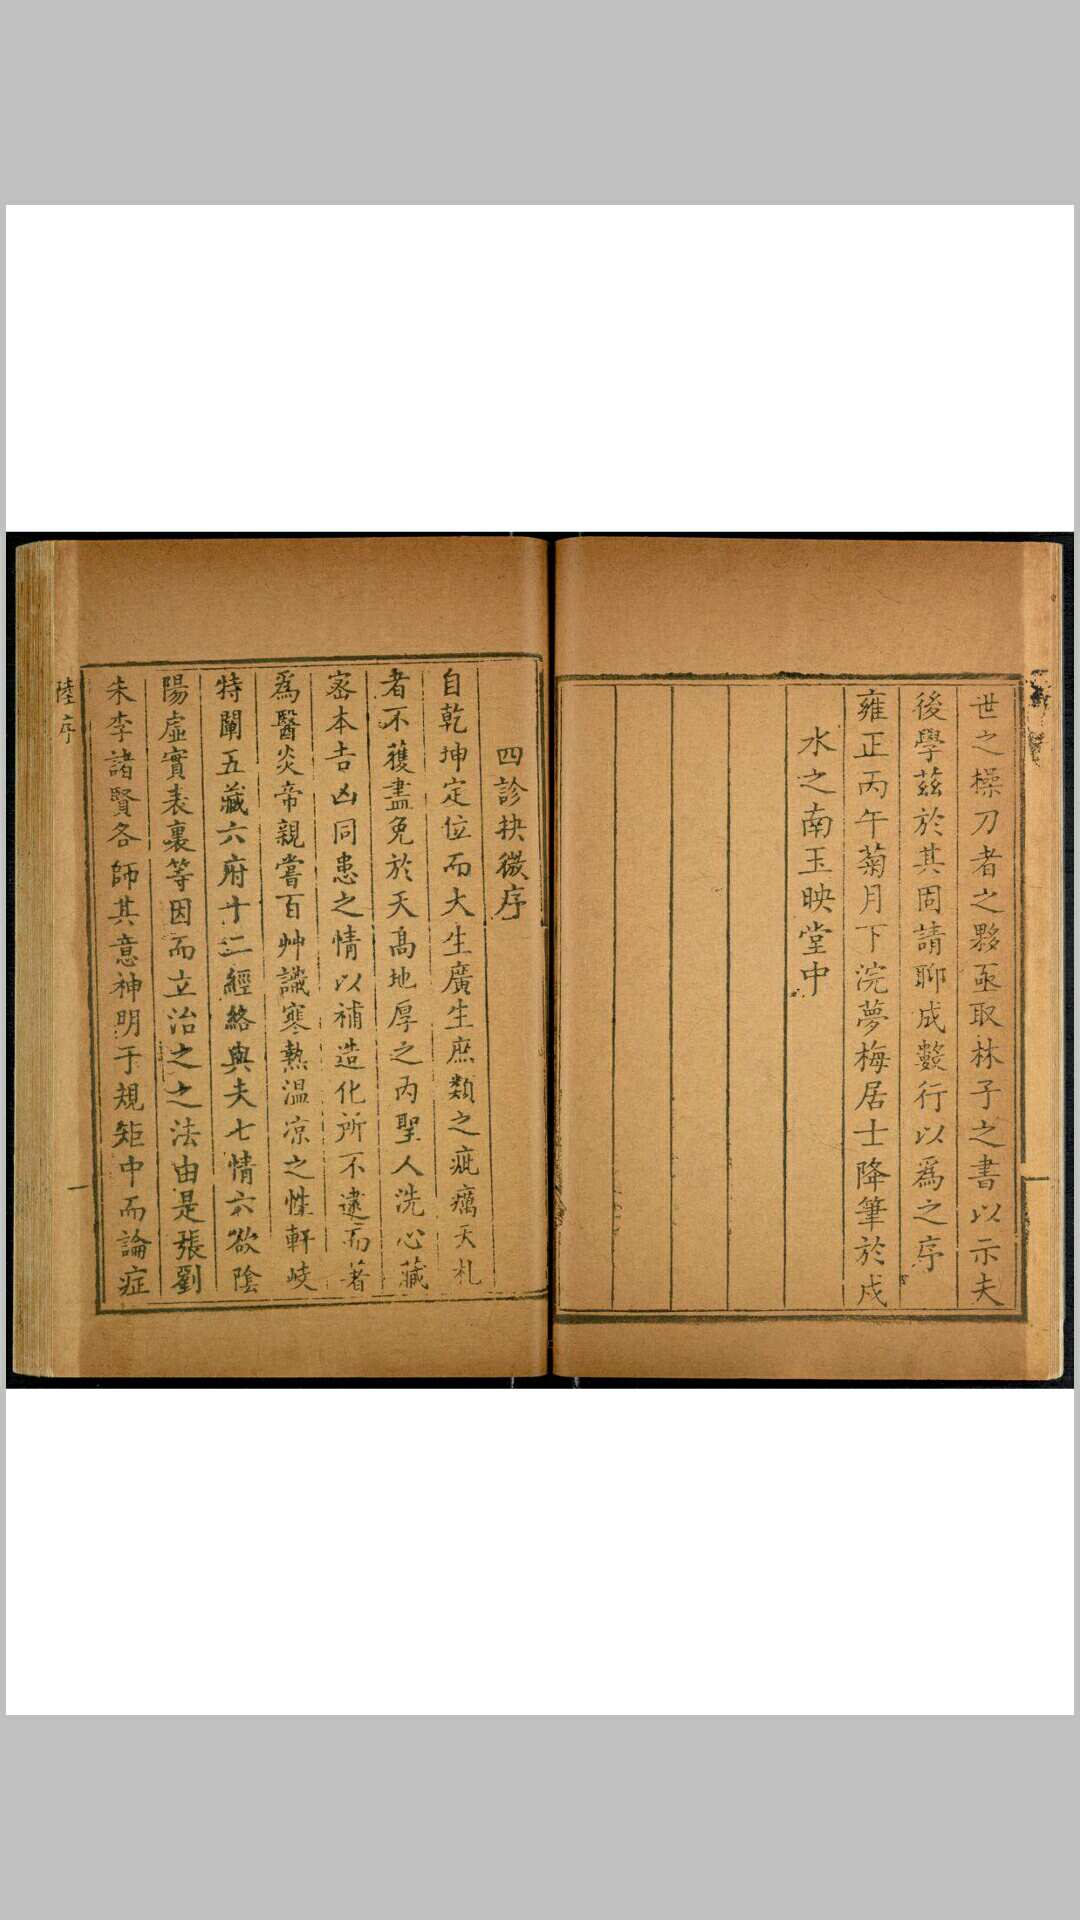 世之操刀者之夥亟取林子之書以示夫
後學茲於其固請聊成數行以爲之序
雍正丙午菊月下浣夢梅居士降筆於戍
水之南玉映堂中
四診抉微序
自乾坤定位而大生廣生庶類之疵癘夭札
者不獲盡免於天高地厚之內聖人洗心藏
密本吉凶同患之情以補造化所不逮而著
爲醫炎帝親嘗百艸識寒熱温凉之性軒岐
特闡五藏六府十二經絡與夫七情六欲陰
陽虛實表裏等因而立治之之法由是張劉
朱李諸賢各師其意神明于規矩中而論症
陸序
一